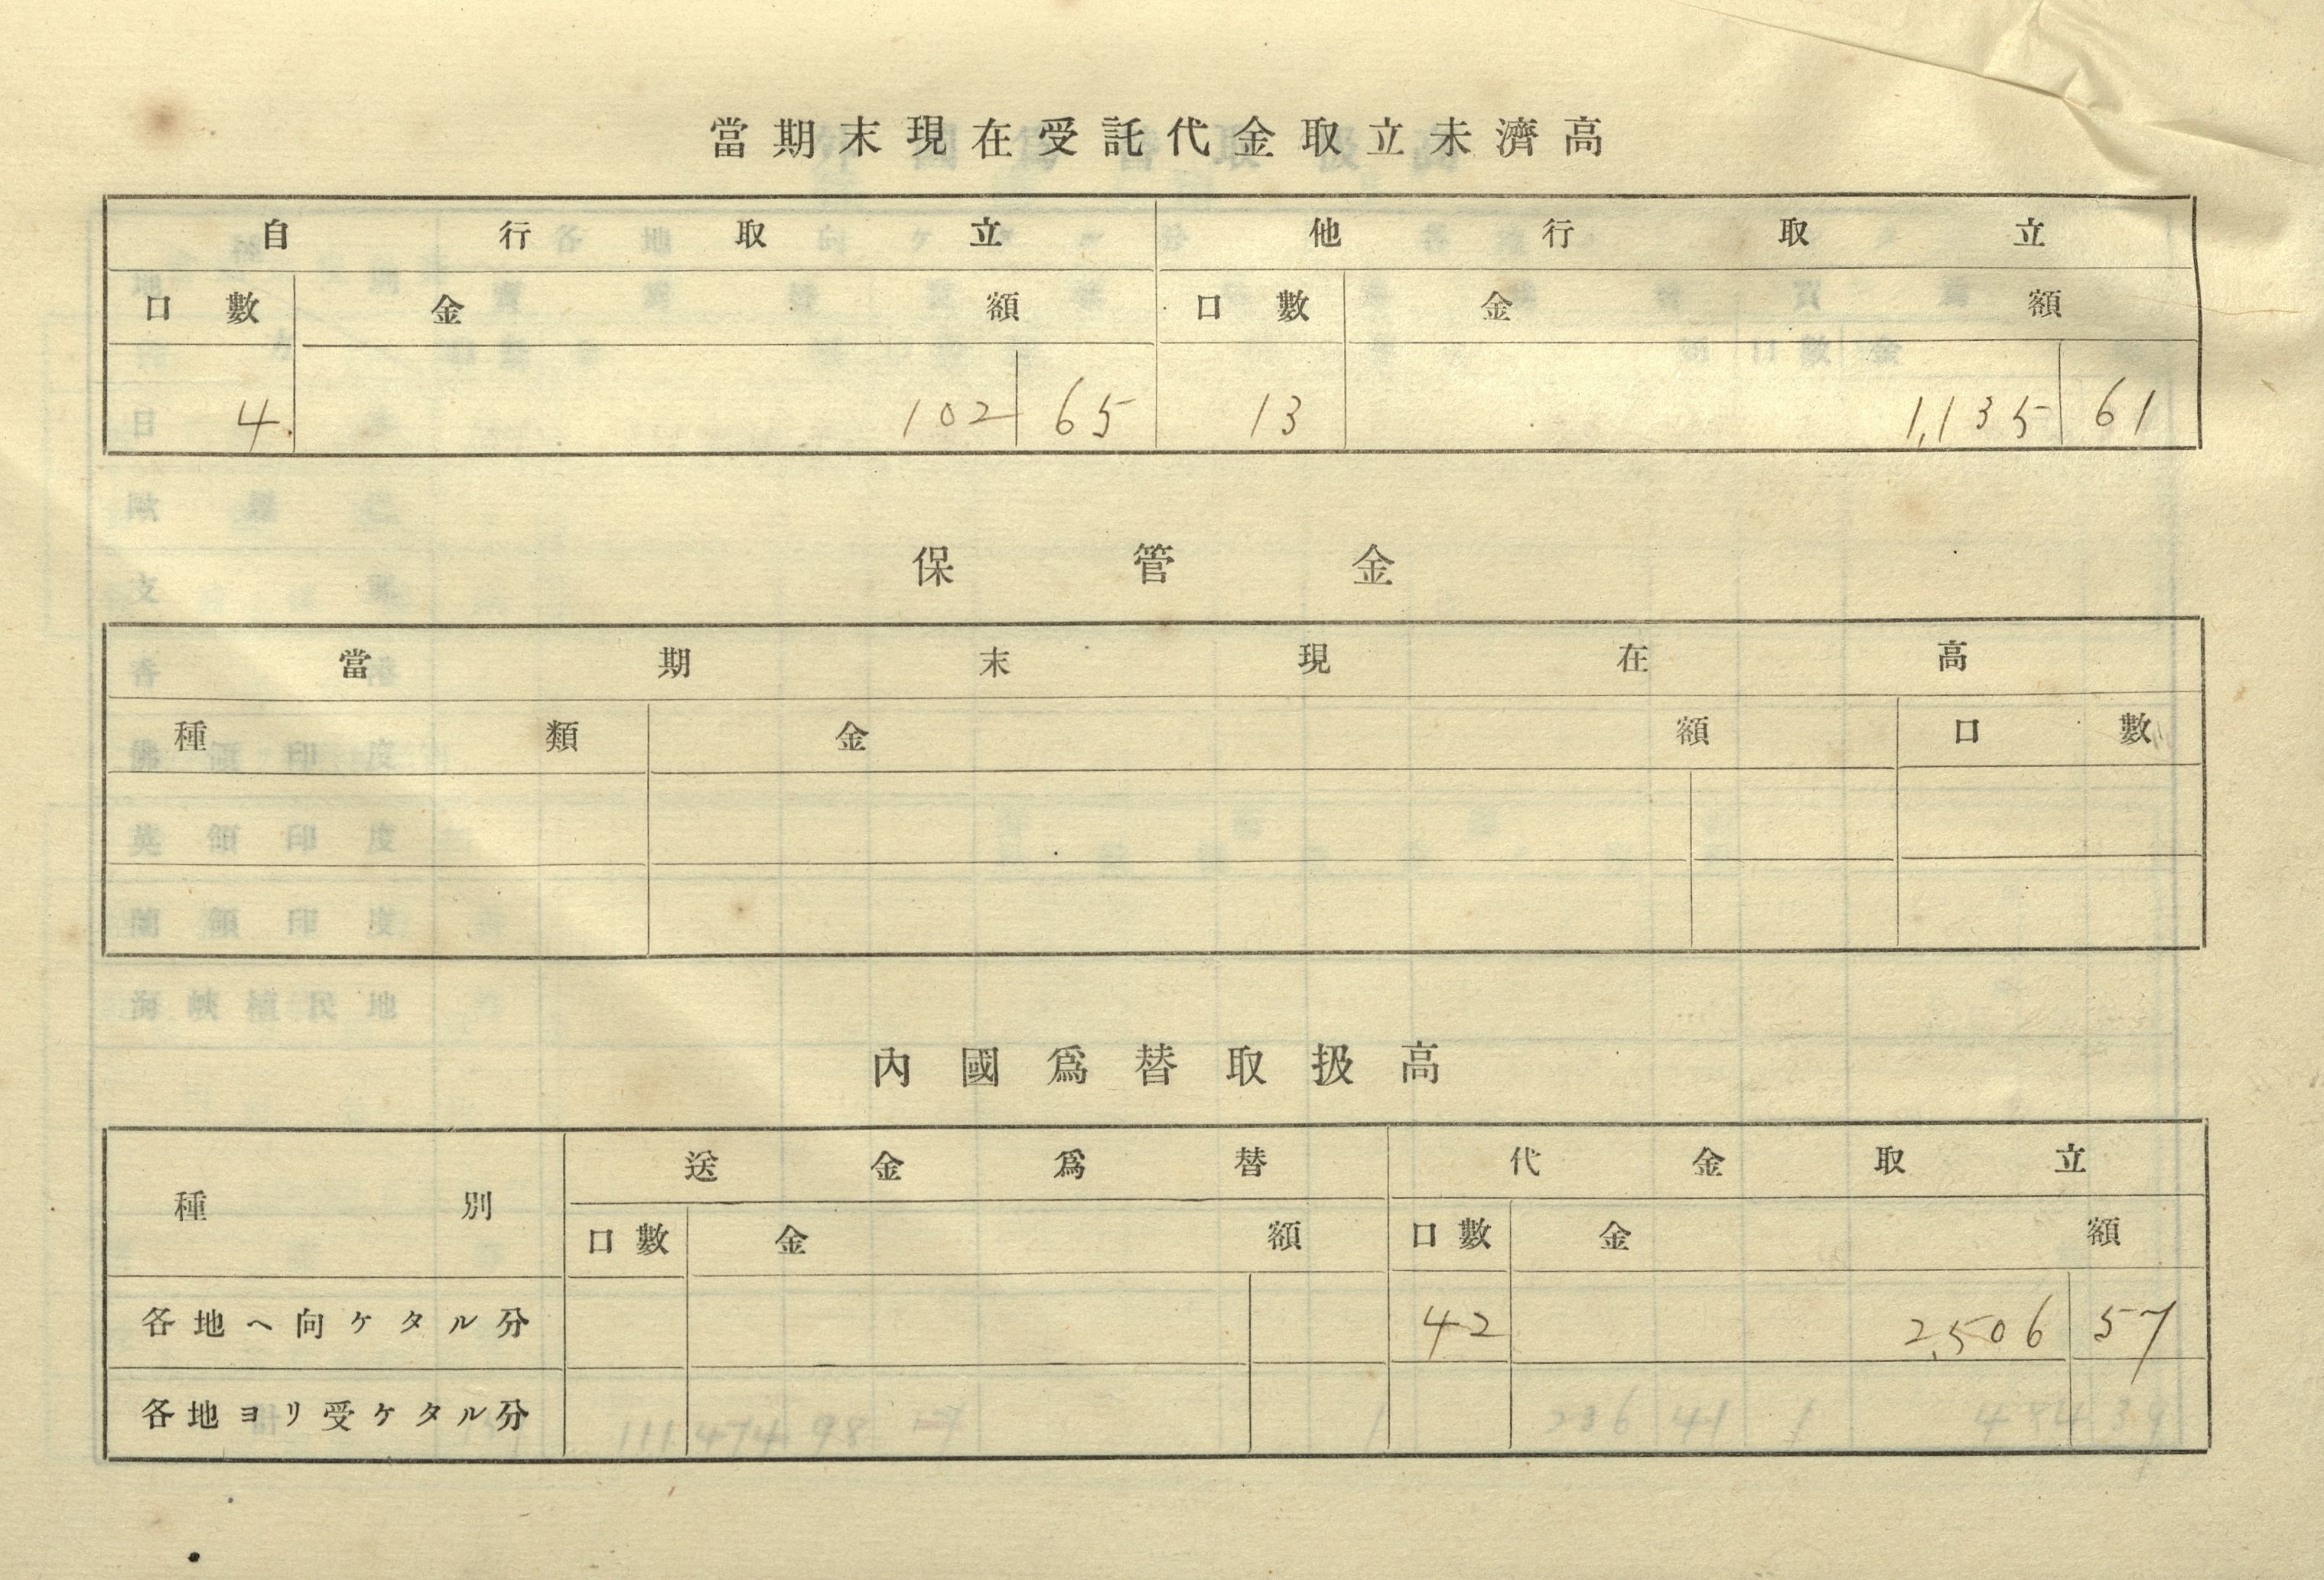 當期末現在受託代金取立未濟高
自行取立 他行取立
口數 金額 口數 金額
4 102 65 13 1,135 61
保管金
當期末現在高
種類 金額 口數
內國爲替取扱高
種別 送金爲替 代金取立
口數 金額 口數 金額
各地ヘ向ケタル分 42 2,506 57
各地ヨリ受ケタル分